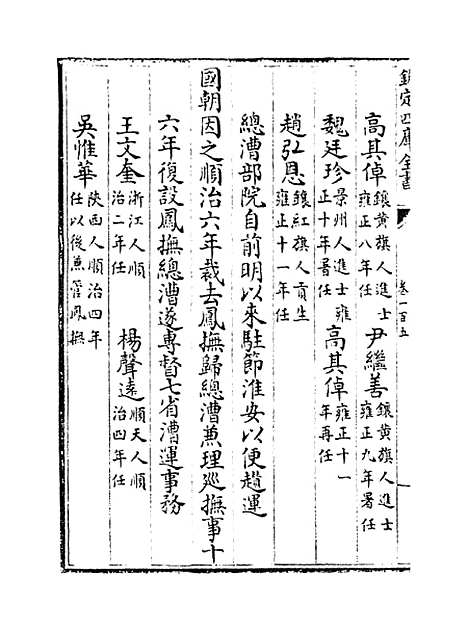 欽定四庫全書
卷一百五
高其倬鑲黃旗人進士雍正八年任 尹繼善鑲黃旗人進士雍正九年署任
魏廷珍景州人進士雍正十年署任 高其倬雍正十一年再任
趙弘恩鑲紅旗人貢生雍正十一年任
總漕部院自前明以來駐節淮安以便趲運
國朝因之順治六年裁去鳳撫歸總漕兼理廵撫事十
六年復設鳳撫總漕遂專督七省漕運事務
王文奎浙江人順治二年任 楊聲遠順天人順治四年任
吳惟華陜西人順治四年任以後兼管鳳撫